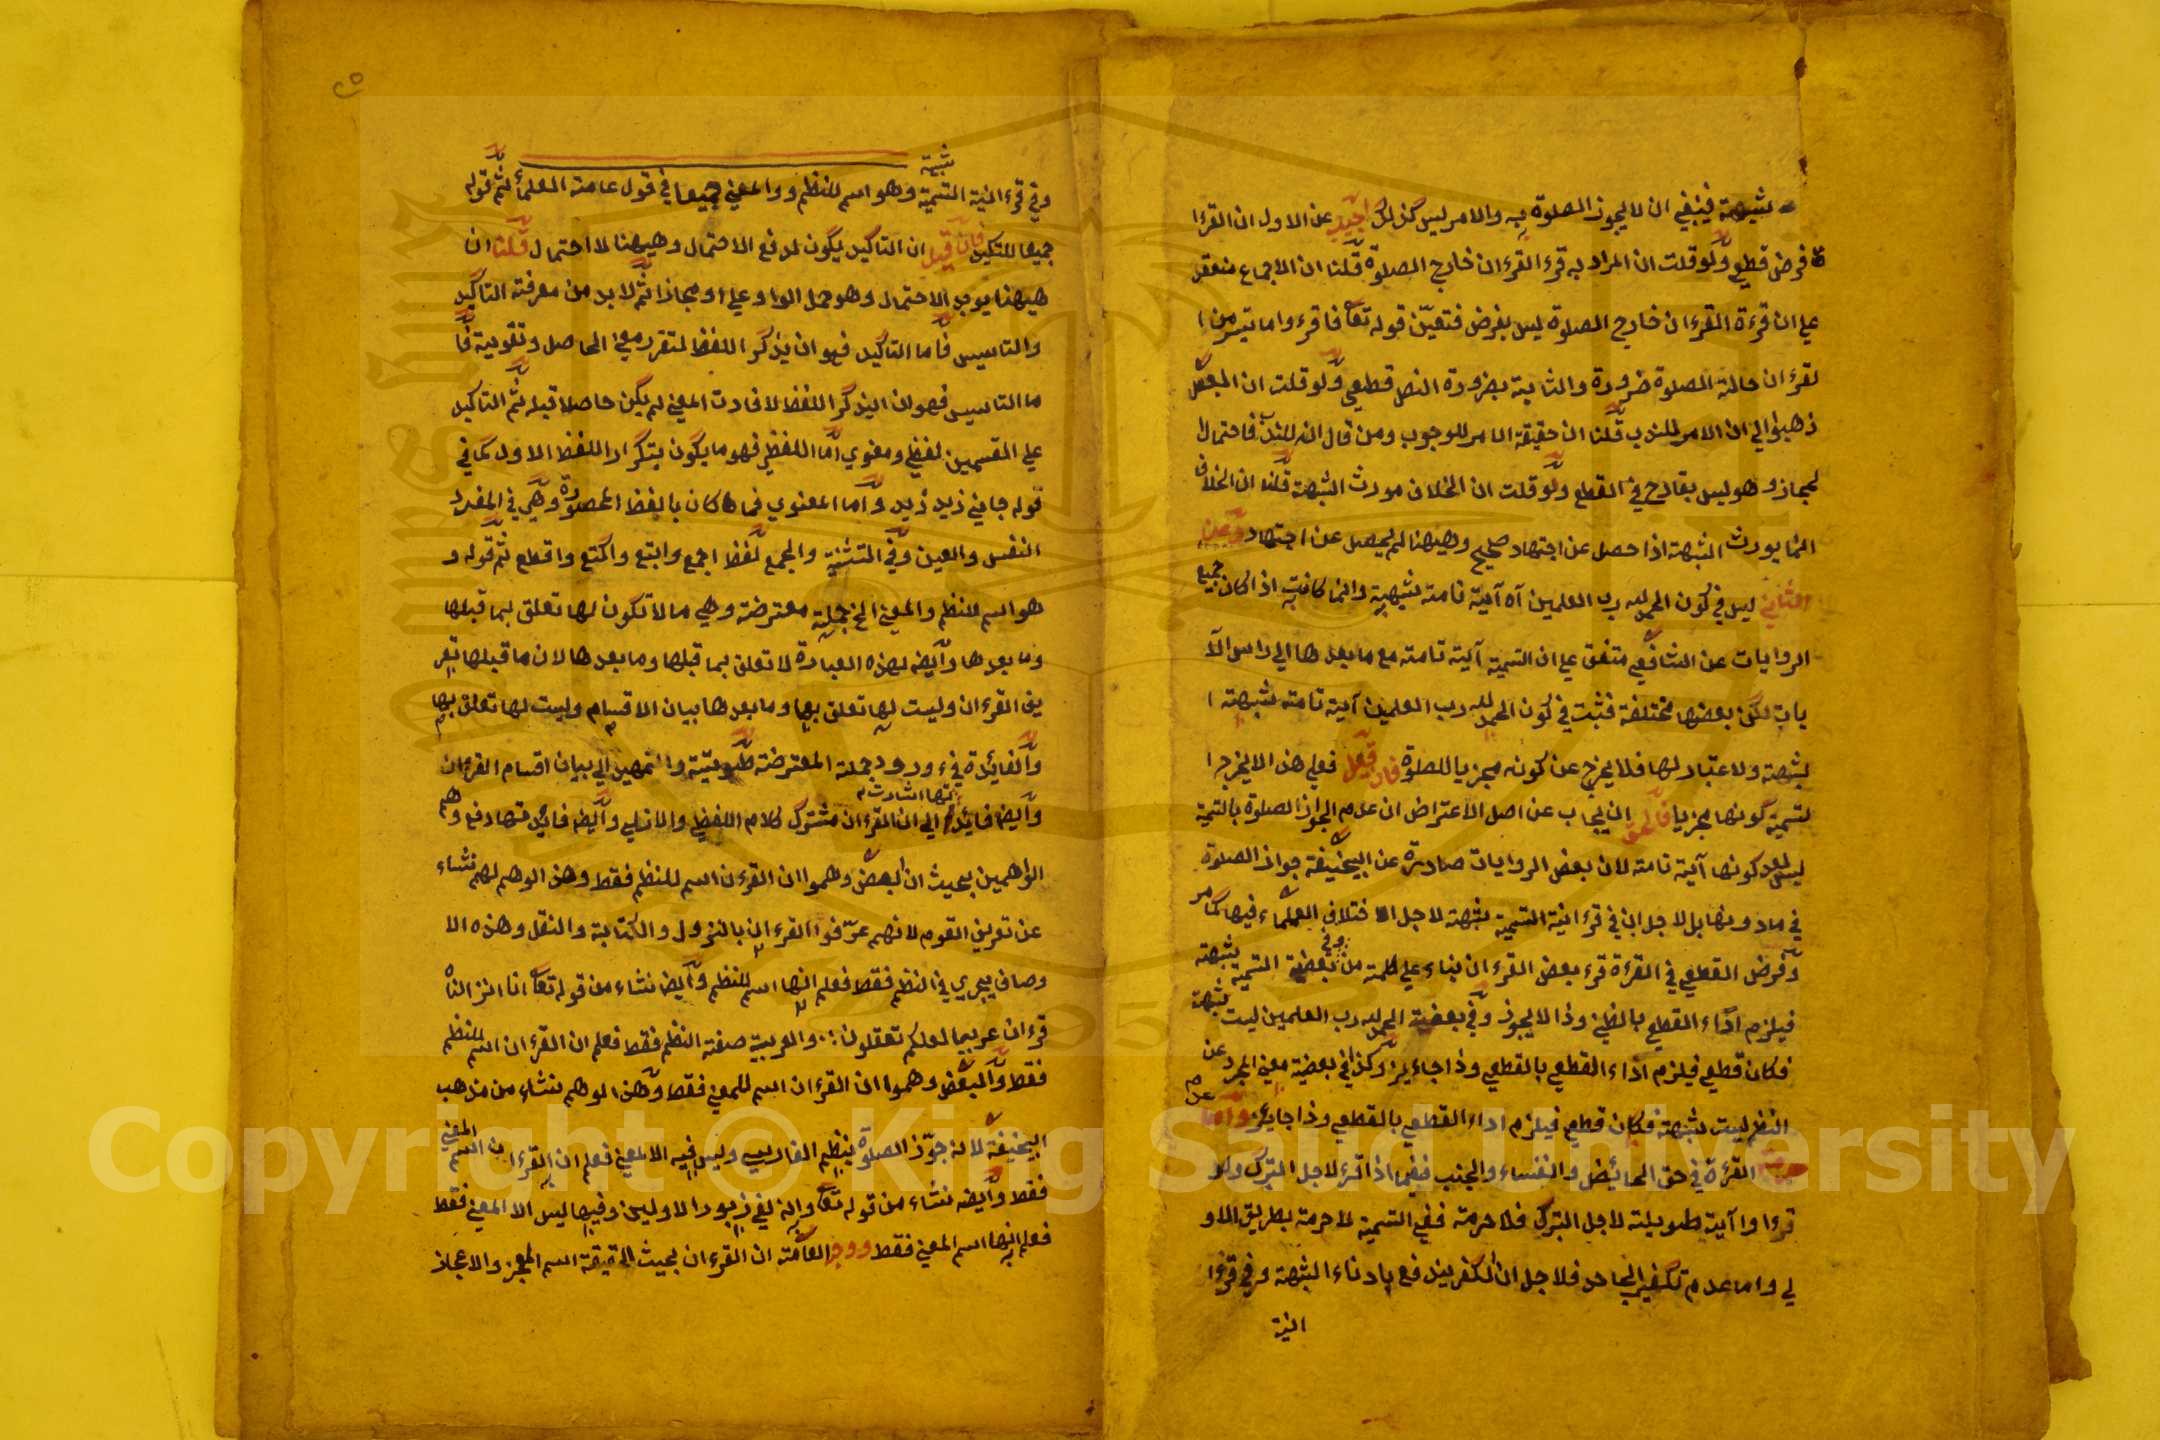 شبهة فينبغي ان لا يجوز الصلوة به والامر ليس كذلك اجيب عن الاول ان القرا
ة فرض قطعي ولو قلت ان المراد به قرء القرءان خارج الصلوة قلنا ان الاجماع منعقد
علي ان قرءة القرءان خارج الصلوة ليس بفرض فتعين قوله تعا فاقرءوا ما تيسر من ا
لقرءان حالة الصلوة ضرورة والثابتة بضرورة النص قطعي ولو قلت ان البعض
ذهبوا الي ان الامر للندب قلنا ان حقيقة الامر للوجوب ومن قال انه للندب فاحتمال
لمجاز وهو ليس بقادح في القطع ولو قلت ان الخلاف مورث الشبهة قلنا ان الخلاف
انما يورث الشبهة اذا حصل عن اجتهاد صحيح وههنا لم يحصل عن اجتهاد وعن
الثاني ليس في كون الحمد لله رب العلمين آه آية تامة شبهة وانما كانت اذا كان جميع
الروايات عن الشافعي متفق علي ان التسمية آية تامة مع ما بعدها الي راس الآ
يات لكن بعضها مختلفة فثبت في كون الحمد لله رب العلمين آية تامة شبهة ا
لشبهة ولا عتبار لها فلا يخرج عن كونه مجزيا للصلوة فان قيل فعلي هذا لا يخرج ا
لتسمية كونها مجزيا فالحق ان يجاب عن اصل الاعتراض ان عدم الجواز الصلوة بالتسمية
ليس لعدم كونها آية تامة لان بعض الروايات صادرة عن ابيحنيفة جواز الصلوة
في مادونها بل لاجل ان في قرءانية التسمية شبهة لاجل اختلاف العلماء فيها كما مر
وفرض القطعي في القرءة قرء بعض القرءان بناء علي كلمة من وفي بعضية التسمية شبهة
فيلزم اداء القطعي بالظني وذا لا يجوز وفي بعضية الحمد لله رب العلمين ليست شبهة
فكان قطعي فيلزم اداء القطعي بالقطعي وذا جايز وكذا في بعضية معني المجرد عن
النظم ليست شبهة فكان قطعي فيلزم اداء القطعي بالقطعي وذا جايز واما عدم
حرمة القرءة في حق الحائض والنفساء والجنب فيما اذا قرء لاجل التبرك ولو
قرءوا آية طويلة لاجل التبرك فلا حرمة ففي التسمية لا حرمة بطريق الاو
لي واما عدم تكفير الجاحد فلاجل ان الكفر يندفع بادناء الشبهة وفي قرءا
انية
وفي قرءانية التسمية شبهة وهو اسم للنظم والمعني جميعا في قول عامة العلماء ثم قوله
جميعا للتاكيد فان قيل ان التاكيد يكون لدفع الاحتمال وههنا لا احتمال قلنا ان
ههنا يوجد الاحتمال وهو حمل الواو علي او مجازا ثم لا بد من معرفة التاكيد
والتاسيس فاما التاكيد فهو ان يذكر اللفظ لتقرر معني الحاصل وتقوية فا
ما التاسيس فهو ان اليذكر اللفظ لافادت المعني لم يكن حاصلا قبله ثم التاكيد
علي القسمين لفظي ومعنوي اما اللفظي فهو ما يكون بتكرار اللفظ الاول كما في
قوله جاءني زيد زيد واما المعنوي فما كان بالفظ المحصورة وهي في المفرد
النفس والعين وفي التثنية والجمع لفظ اجمع وابتع واكتع واقطع ثم قوله و
هو اسم للنظم والمعني الخ جملة معترضة وهي ما لا تكون لها تعلق بما قبلها
وما بعدها وايضا لهذه العبارة لا تعلق بما قبلها وما بعدها لان ما قبلها تعر
يف القرءان وليست لها تعلق بها وما بعدها بيان الاقسام وليست لها تعلق بها
والفائدة في ورود جملة المعترضة طوبئية والتمهيد الي بيان اقسام القرءان
وايضا فائدتها اشارت الي ان القرءان مشترك كلام اللفظي والازلي وايضا فائدتها دفع وهم
الواهمين بحيث ان البعض وهموا ان القرءان اسم للنظم فقط وهذا الوهم لهم نشاء
عن تعريف القوم لانهم عرفوا القرءان بالنزول والكتابة والنقل وهذه الا
وصاف يجري في النظم فقط فعلم انها اسم للنظم وايضا نشاء من قوله تعا انا انزلناه
قرءان عربيا لعلكم تعقلون والعربية صفة النظم فقط فعلم ان القرءان اسم للنظم
فقط والبعض وهموا ان القرءان اسم للمعني فقط وهذا الوهم نشاء من مذهب
ابيحنيفة لانه جوز الصلوة بنظم الفارسي وليس فيه الا المعني فعلم ان القرءان اسم المعني
فقط وايضا نشاء من قوله تعا وانه لفي زبور الاولين وفيها ليس الا المعني فقط
فعلم انها اسم المعني فقط ووجه العامة ان القرءان بحيث الحقيقة اسم المعجز والاعجاز
Copyright © King Saud University